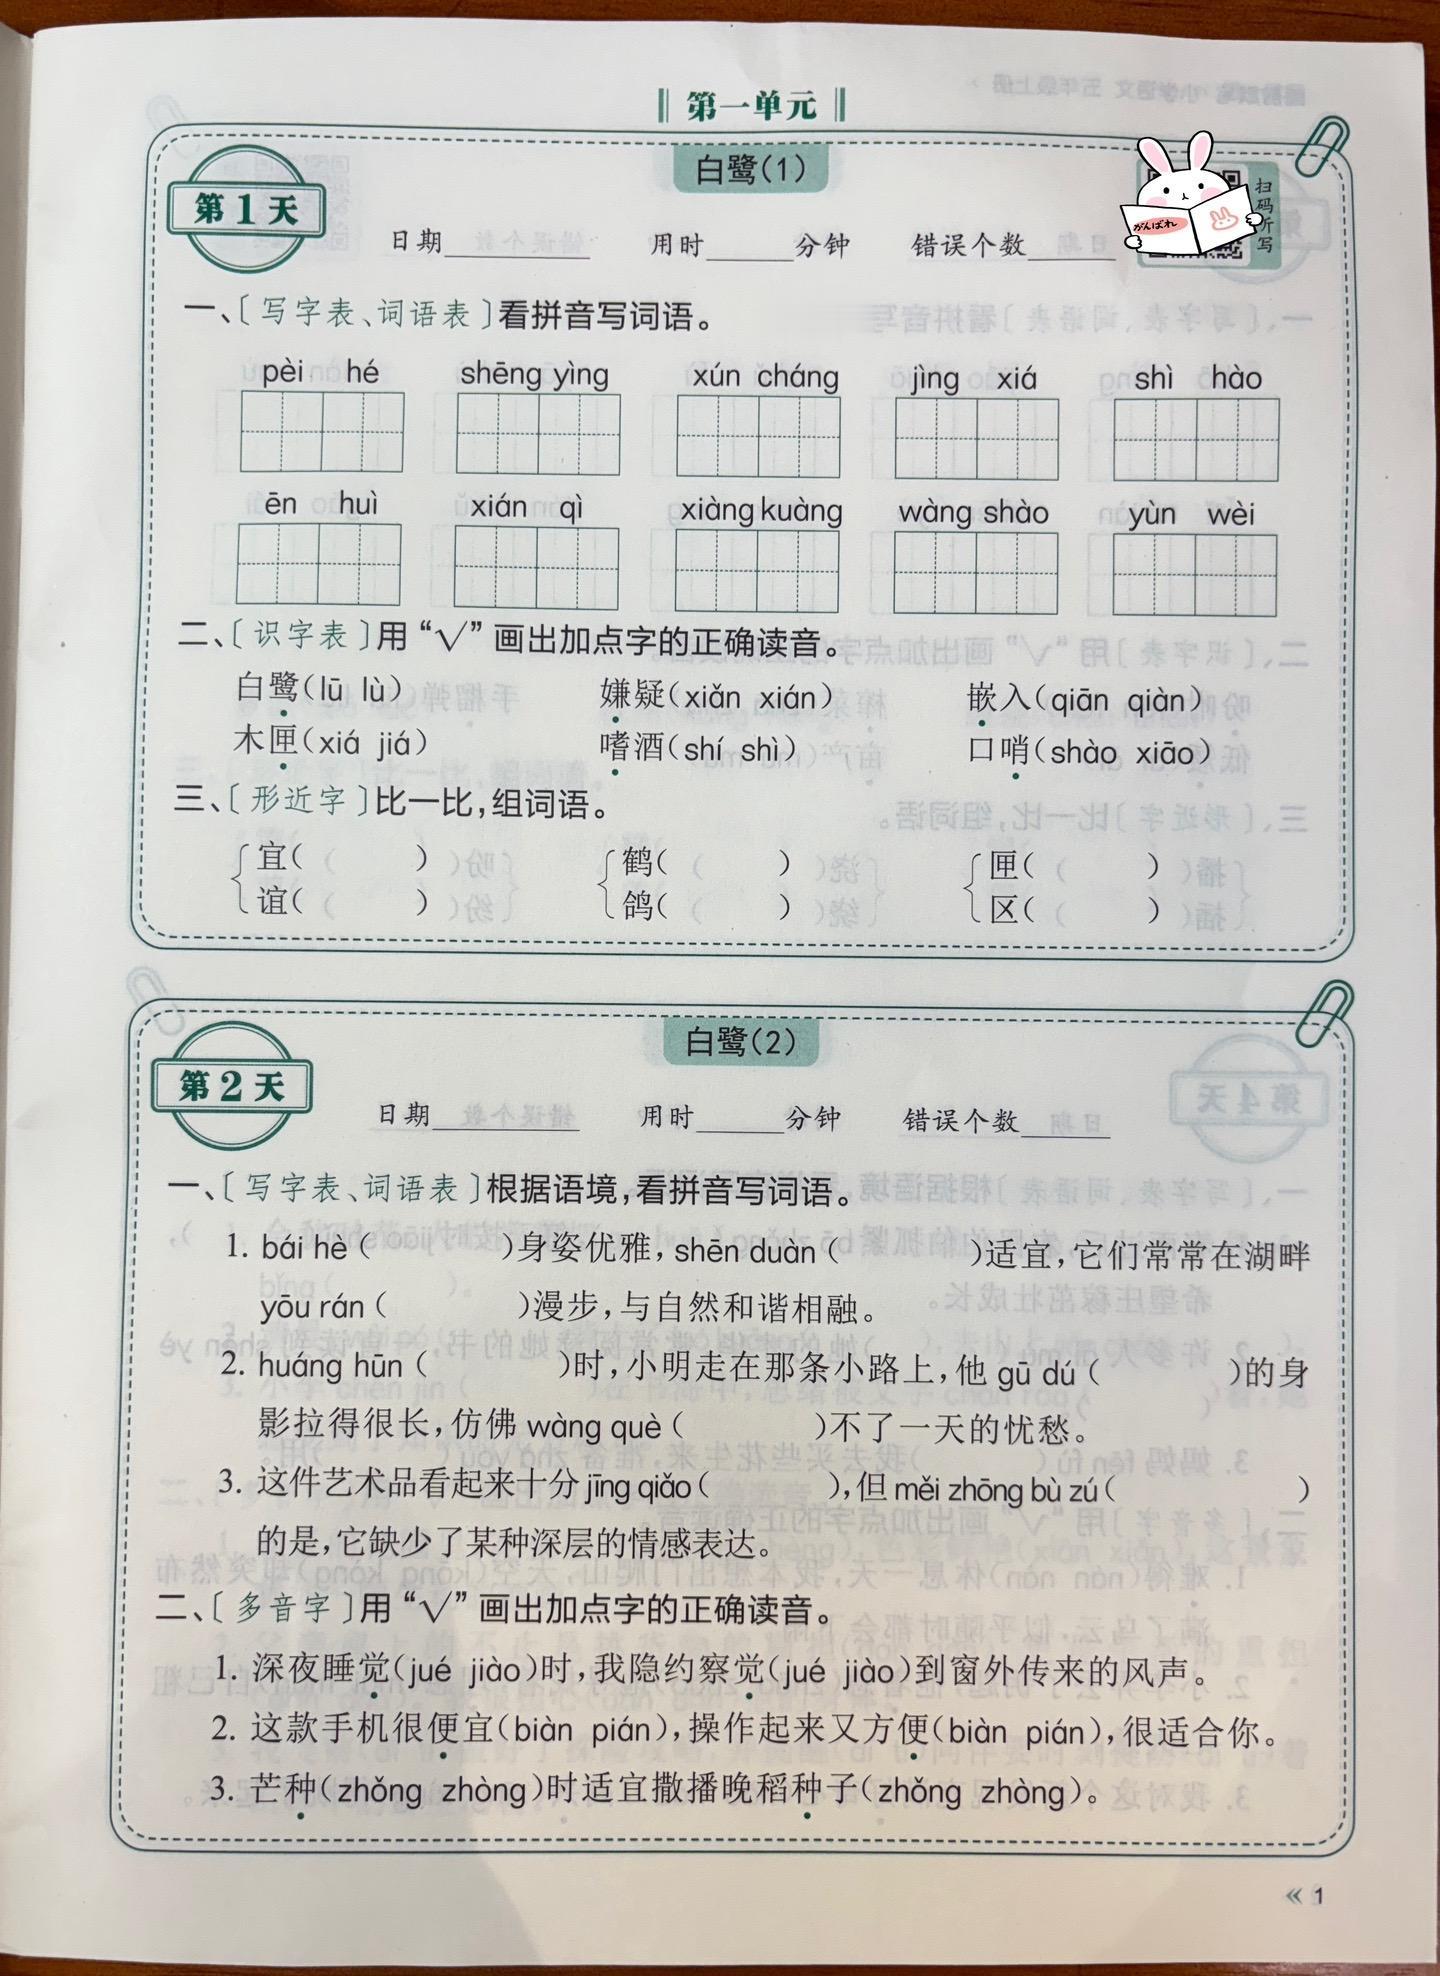 第一单元
白鹭(1)
第1天
日期 用时 分钟 错误个数
扫码听写
がんばれ
一、〔写字表、词语表〕看拼音写词语。
pèi hé shēng yìng xún cháng jìng xiá shì hào
ēn huì xián qì xiàng kuàng wàng shào yùn wèi
二、〔识字表〕用“√”画出加点字的正确读音。
白鹭(lū lù) 嫌疑(xiǎn xián) 嵌入(qiān qiàn)
木匣(xiá jiá) 嗜酒(shí shì) 口哨(shào xiāo)
三、〔形近字〕比一比,组词语。
宜( ) 鹤( ) 匣( )
谊( ) 鸽( ) 区( )
白鹭(2)
第2天
日期 用时 分钟 错误个数
一、〔写字表、词语表〕根据语境,看拼音写词语。
1. bái hè( )身姿优雅,shēn duàn( )适宜,它们常常在湖畔
yōu rán( )漫步,与自然和谐相融。
2. huáng hūn( )时,小明走在那条小路上,他 gū dú( )的身
影拉得很长,仿佛 wàng què( )不了一天的忧愁。
3. 这件艺术品看起来十分 jīng qiǎo( ),但 měi zhōng bù zú( )
的是,它缺少了某种深层的情感表达。
二、〔多音字〕用“√”画出加点字的正确读音。
1. 深夜睡觉(jué jiào)时,我隐约察觉(jué jiào)到窗外传来的风声。
2. 这款手机很便宜(biàn pián),操作起来又方便(biàn pián),很适合你。
3. 芒种(zhǒng zhòng)时适宜撒播晚稻种子(zhǒng zhòng)。
« 1